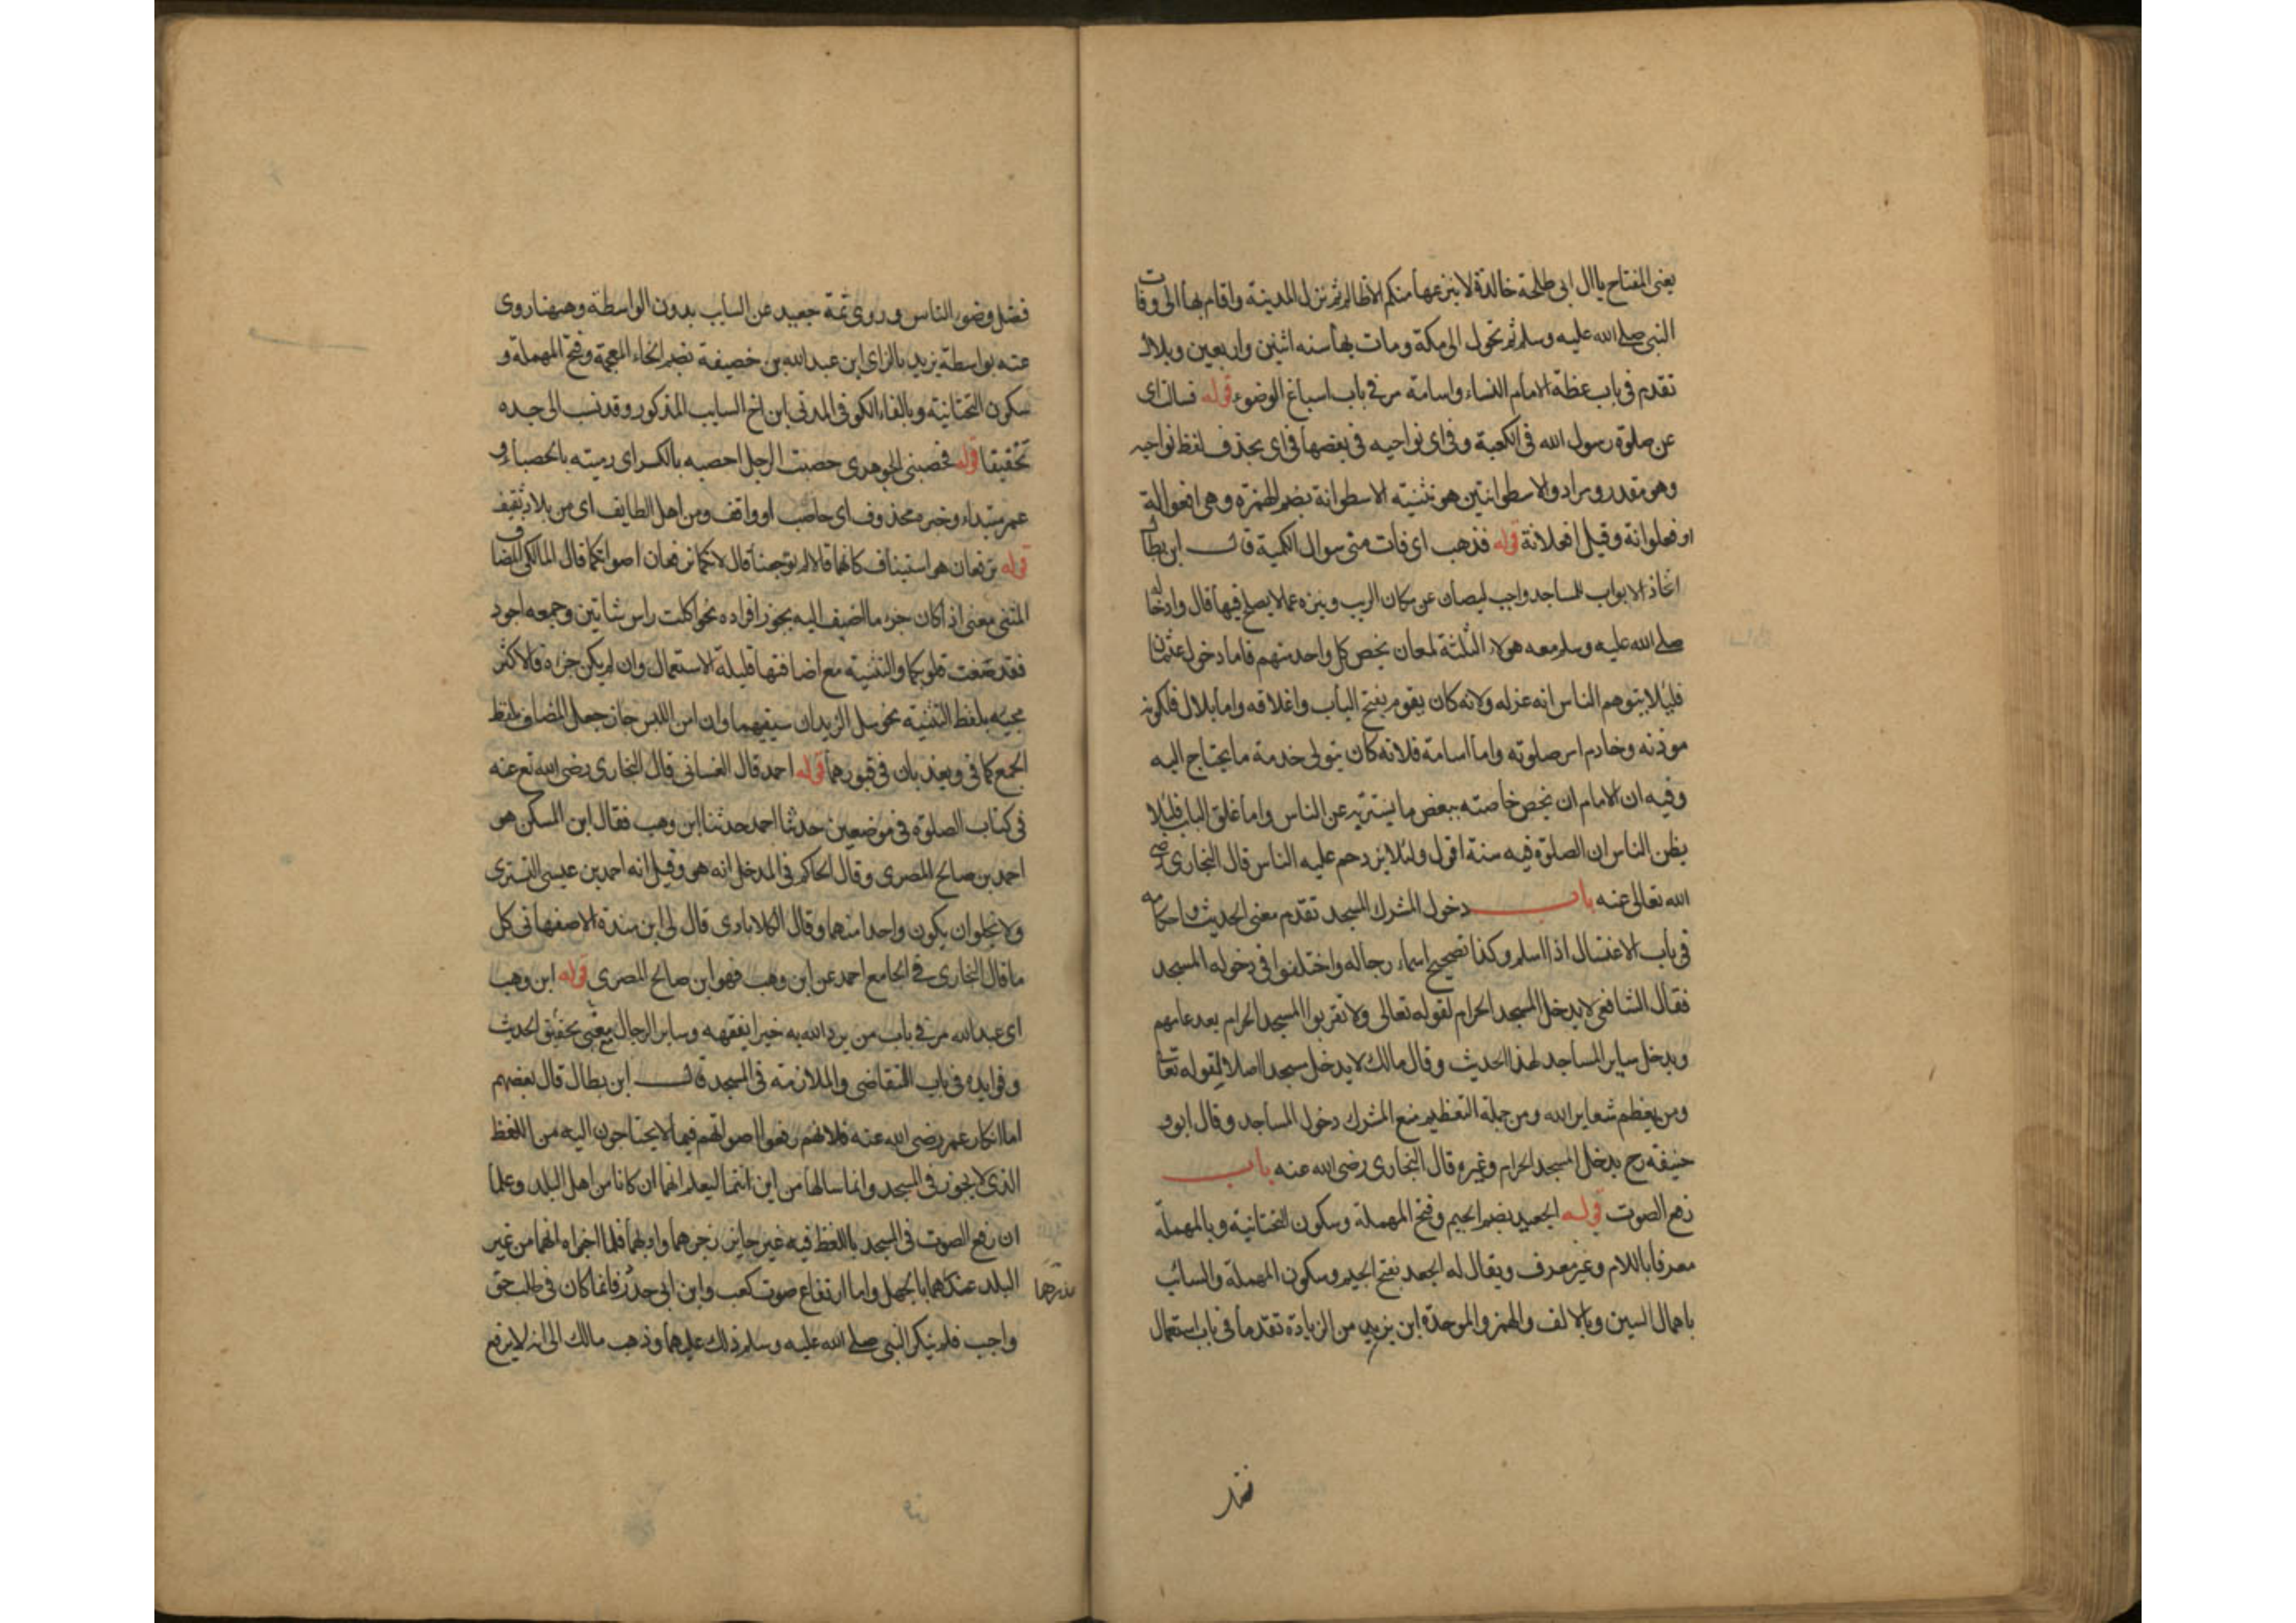 يعنى المفتاح ياال ابى طلحة خالدة لا ينزعها منكم الاظالم ثم نزل المدينة واقام بها الى وفات
النبى صلى الله عليه وسلم ثم تحول الى مكة ومات بها سنه اثنين واربعين وبلال
تقدم فى باب عظة الامام النساء واسامة مر فى باب اسباغ الوضوء قوله فسالت اى
عن صلوة رسول الله فى الكعبة وفى اى نواحيه فى بعضها فى اى بحذف لفظ نواحيه
وهو مقدر ومراد والاسطوانتين هو تثنيته الاسطوانة بضم الهمزة وهى افعوالة
او فعلوانة وقيل افعلانة قوله فذهب اى فات منى سوال الكمية قال ابن بطال
اتخاذ الابواب للمساجد واجب ليصان عن مكان الريب وينزه عما لا يصلح فيها قال وادخاله
صلى الله عليه وسلم معه هولاء الثلثة لمعان يخص كل واحد منهم فاما دخول عثمان
فليلا يتوهم الناس انه عزله ولانه كان يقوم بفتح الباب واغلاقه واما بلال فلكونه
موذنه وخادم امر صلوته واما اسامة فلانه كان يتولى خدمة ما يحتاج اليه
وفيه ان الامام ان يخص خاصته ببعض ما يستتر به عن الناس واما غلق الباب فليلا
يظن الناس ان الصلوة فيه سنة اقول ولئلا يزدحم عليه الناس قال البخارى رضى
الله تعالى عنه باب دخول المشرك المسجد تقدم معنى الحديث واحكامه
فى باب الاغتسال اذا اسلم وكذا تصحيح اسماء رجاله واختلفوا فى دخوله المسجد
فقال الشافعى لا يدخل المسجد الحرام لقوله تعالى ولا تقربوا المسجد الحرام بعد عامهم
ويدخل ساير المساجد لهذا الحديث وقال مالك لا يدخل مسجدا اصلا لقوله تعالى
ومن يعظم شعاير الله ومن جملة التعظيم منع المشرك دخول المساجد وقال ابو
حنيفه رح يدخل المسجد الحرام وغيره وقال البخارى رضى الله عنه باب
رفع الصوت قوله الجعيد بضم الجيم وفتح المهملة وسكون التحتانية وبالمهملة
معرفا باللام وغير معرف ويقال له الجعد بفتح الجيم وسكون المهملة والسائب
باهمال السين وبالالف والهمز والموحدة ابن يزيد من الزيادة تقدما فى باب استعمال
فضل
فضل وضوء الناس وروى ثمة جعيد عن السايب بدون الواسطة وههنا روى
عنه بواسطة يزيد بالزاى ابن عبد الله بن خصيفة بضم الخاء المعجمة وفتح المهملة و
سكون التحتانية وبالفاء الكوفى المدنى ابن اخ السايب المذكور وقد نسب الى جده
تحقيقا قوله فحصبنى الجوهرى حصبت الرجل احصبه بالكسر اى رميته بالحصباء و
عمر مبتداء وخبره محذوف اى حاصب او واقف ومن اهل الطايف اى من بلاد ثقيف
قوله ترفعان هو استيناف كانهما قالا لم توجعنا قال لانكما ترفعان اصواتكما قال المالكى المضاف
المثنى معنى اذا كان جزء ما اضيف اليه يجوز افراده نحو اكلت راس شاتين وجمعه اجود
فقد صغت قلوبكما والتثنيه مع اضافتها قليلة الاستعمال وان لم يكن جزءه فالاكثر
مجيئه بلفظ التثنيه نحو سل الزيدان سيفيهما وان امن اللبس جاز جعل المضاف بلفظ
الجمع كما فى ويعذبان فى قبورهما قوله احمد قال الغسانى قال البخارى رضى الله تع عنه
فى كتاب الصلوة فى موضعين حدثنا احمد حدثنا ابن وهب فقال ابن السكن هو
احمد بن صالح المصرى وقال الحاكم فى المدخل انه هو وقيل انه احمد بن عيسى التسترى
ولا يخلوان يكون واحدا منهما وقال الكلابادى قال لى ابن مندة الاصفهانى كل
ما قال البخارى فى الجامع احمد عن ابن وهب فهو ابن صالح المصرى قوله ابن وهب
اى عبد الله مر فى باب من يرد الله به خيرا يفقهه وساير الرجال مع تحقيق الحديث
وفوايده فى باب التقاضى والملازمة فى المسجد قال ابن بطال قال بعضهم
اما انكار عمر رضى الله عنه فلانهم رفعوا اصواتهم فيما لا يحتاجون اليه من اللغط
الذى لا يجوز فى المسجد وانما سالها من اين انتما ليعلم انهما ان كانا من اهل البلد وعلما
ان رفع الصوت فى المسجد باللغظ فيه غير جايز زجرهما وادبهما فلما اخبراه انهما من غير
البلد عذرهما بالجهل واما ارتفاع صوت كعب وابن ابى حدرد فانما كان فى طلب حق
عذرهما
واجب فلم ينكر النبى صلى الله عليه وسلم ذلك عليهما وذهب مالك الى انه لا يرفع